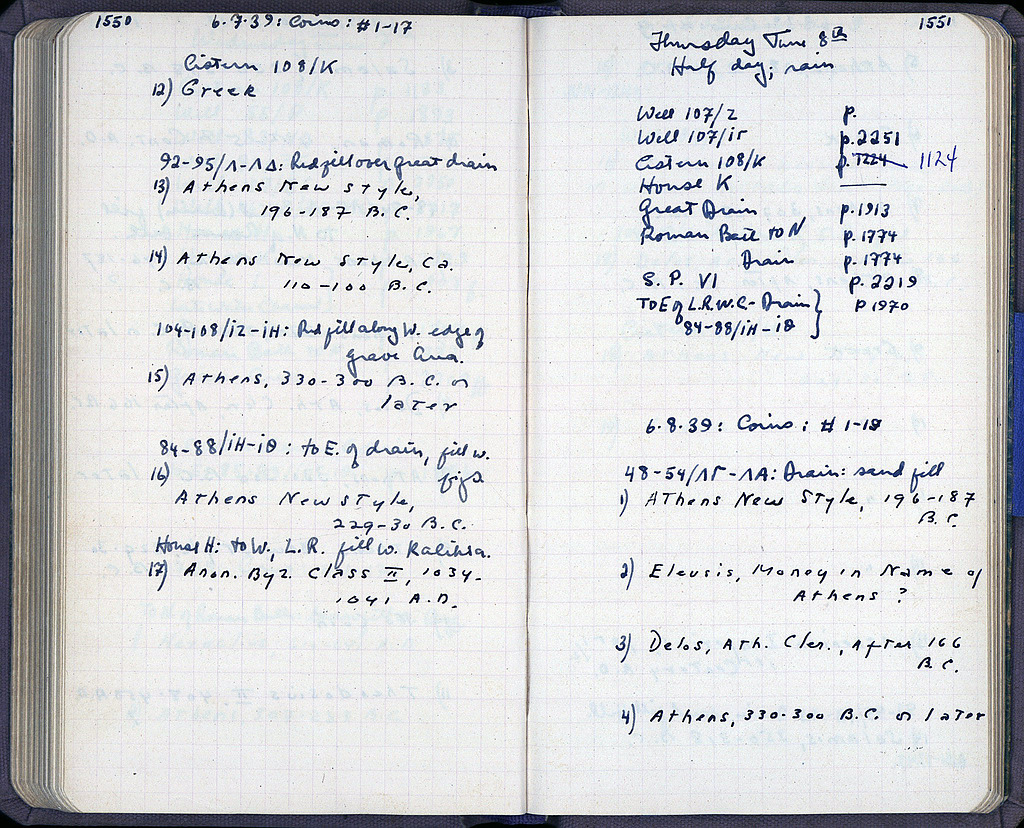 1550
6.7.39: Coins: #1-17
Cistern 108/K
12) Greek
92-95/Λ-ΛΔ: Red fill over great drain
13) Athens New Style,
196-187 B.C.
14) Athens New Style, Ca.
110-100 B.C.
104-108/ΙΖ-ΙΗ: Red fill along W. edge of
grave Area.
15) Athens, 330-300 B.C. or
later
84-88/ΙΗ-ΙΘ: to E. of drain, fill w.
16)
Athens New Style,
229-30 B.C.
House H: to W., L.R. fill w.
17) Anon. Byz. Class II, 1034-
1041 A.D.
1551
Thursday June 8th
Half day; rain
Well 107/Ζ p.
Well 107/ΙΕ p. 2251
Cistern 108/K p. 1224 1124
House K ——
Great Drain p. 1913
Roman Bath to N p. 1774
Drain p. 1774
S. P. VI p. 2219
To E of L.R.W.C. - Drain } p 1970
84-88/ΙΗ-ΙΘ
6.8.39: Coins: #1-18
48-54/ΛΓ-ΛΑ: Drain: sand fill
1) Athens New Style, 196-187
B.C.
2) Eleusis, Money in Name of
Athens ?
3) Delos, Ath. Cler., After 166
B.C.
4) Athens, 330-300 B.C. or later